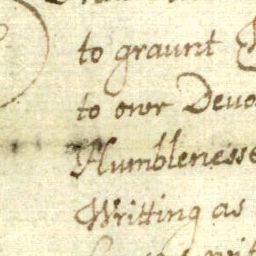 to graunt
to owr Devo
Humblenesse
Writting as